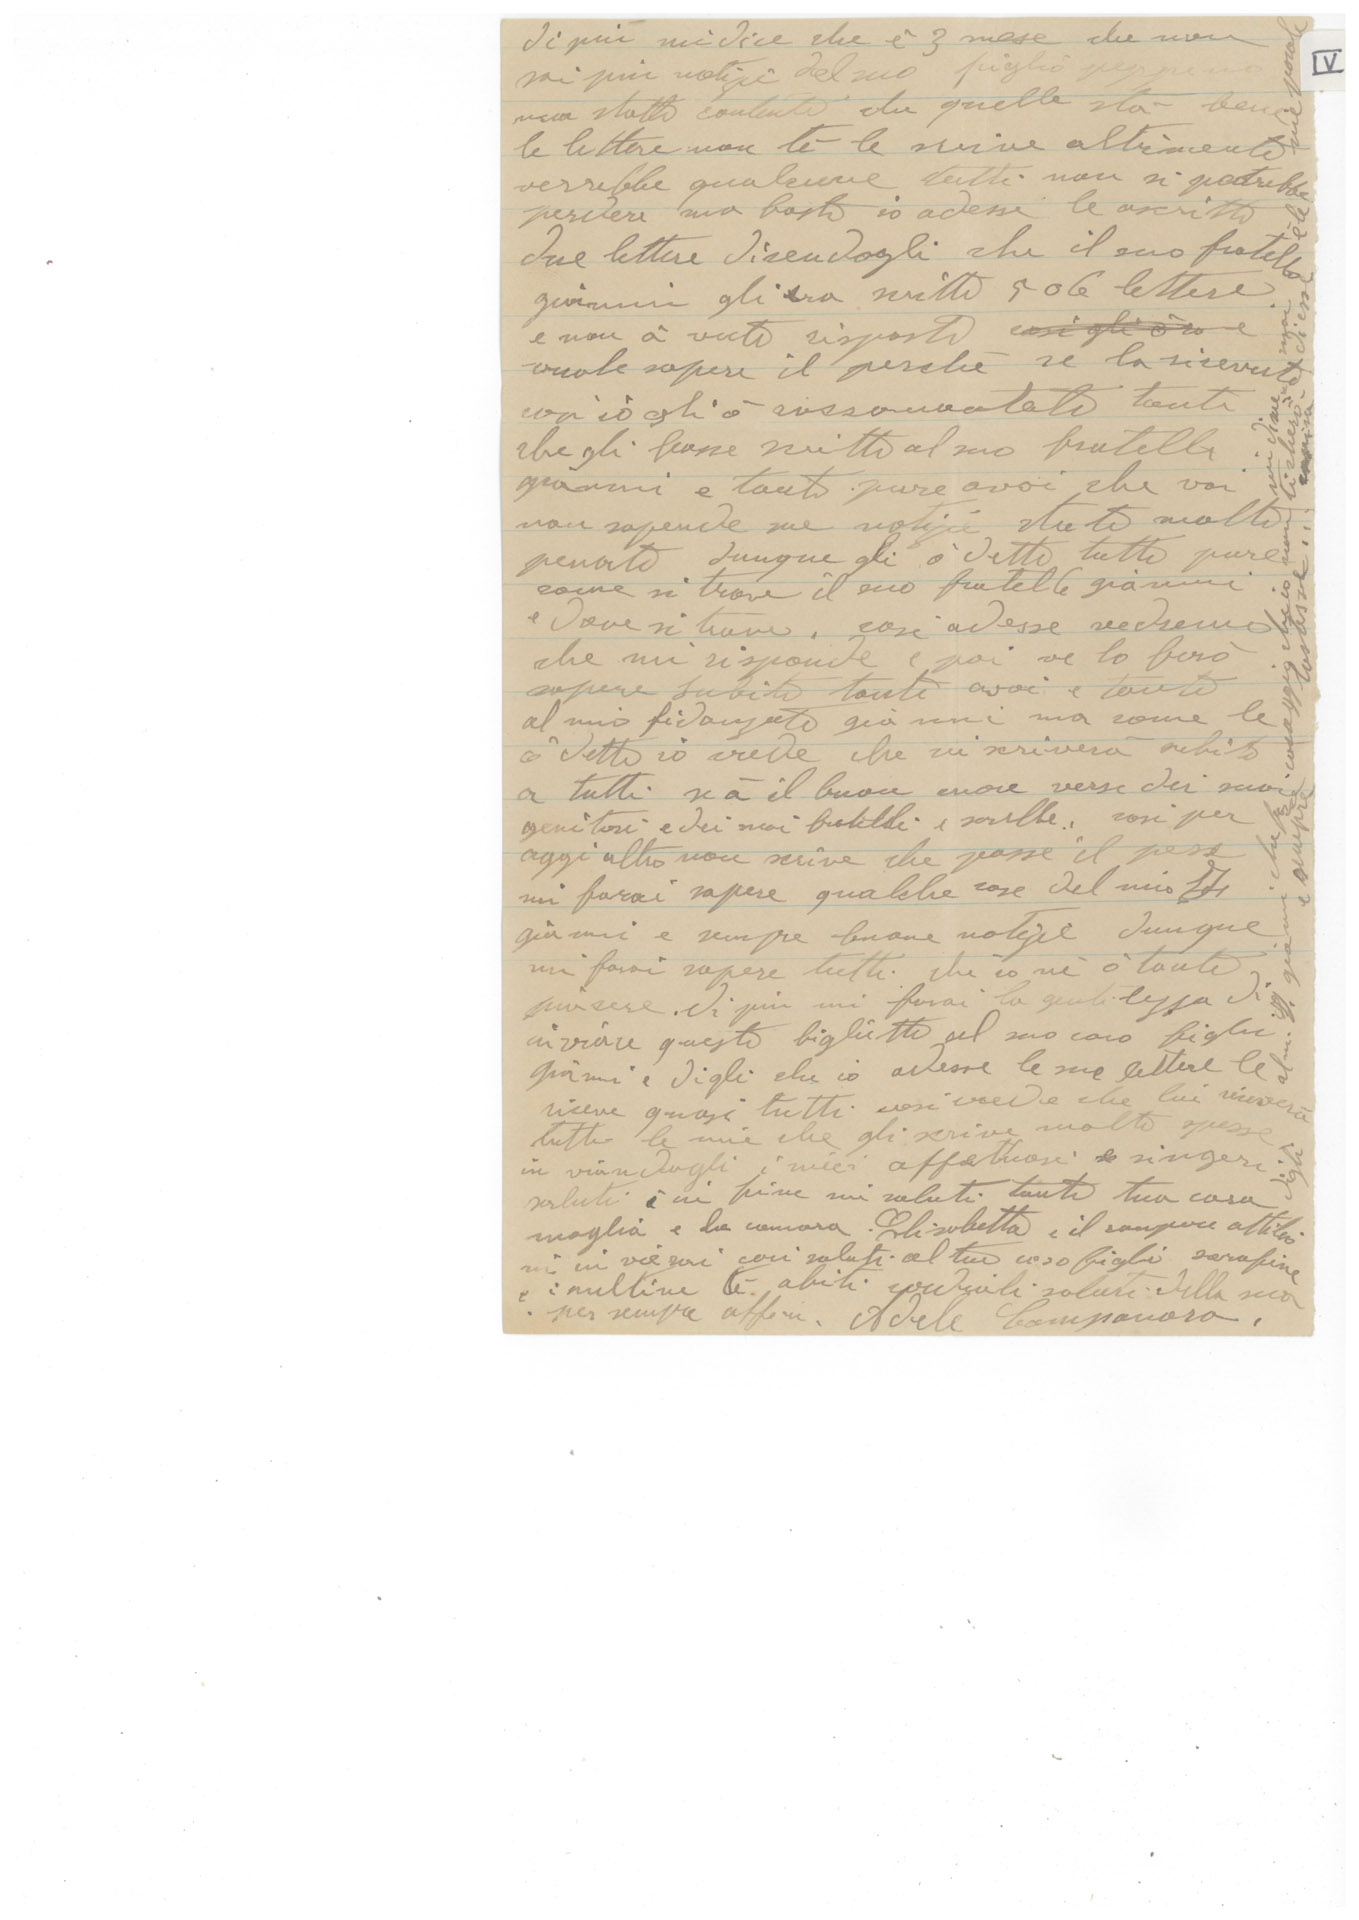 di più mi dice che è 3 mese che non
sai più notizie del suo figlio peppeno
ma statti contento che quello sta bene
le lettere non te le scrive altrimente
verrebbe qualcune tutti non si potrebbe
perdere ma basto io adesse le oscritto
due lettere dicendogli che il suo fratello
gianni gli era scritto 5 o 6 lettere
e non à vuto risposto cosi gli ò so e
vuole sapere il perchè se la ricevuto
cosi iò gli ò raccomantato tanto
che gli fasse scritto al suo fratello
gianni e tanto pure avoi che voi
non sapende sue notizie state molto
penato dunque gli ò detto tutto pure
come si trova il suo fratello gianni
e dove si trova, cosi adesse vedremo
che mi risponde e poi ve lo farò
sapere subito tanto avoi e tanto
al mio fidanzato gianni ma come le
ò detto iò crede che vi scriverà subito
a tutti se à il buon cuore verse dei suoi
genitori e dei suoi fratelli e sorelle, cosi per
oggi altro non scrive che passe il
mi farai sapere qualche cose del mio
gianni e sempre buone notizie dunque
mi farai sapere tutti che io nè ò tanto
piacere. di più mi farai la gentilezza di
inviare questo biglietto al suo caro figlio
gianni e digli che iò adesse le sue lettere le
riceve quasi tutti cosi crede che lui riceverà
tutte le mie che gli scrive molto spesse
in viandogli i miei affettuosi e singeri
saluti e in fine mi saluti tanto tua cara
moglia e la comara Elisabetta e il compare attilio
mi in vierai cari saluti al tuo caro figlio serafine
e imultine tè abiti cordiali saluti della sua
per sempre affem. Adele Campanara.
digli al mi gianni che